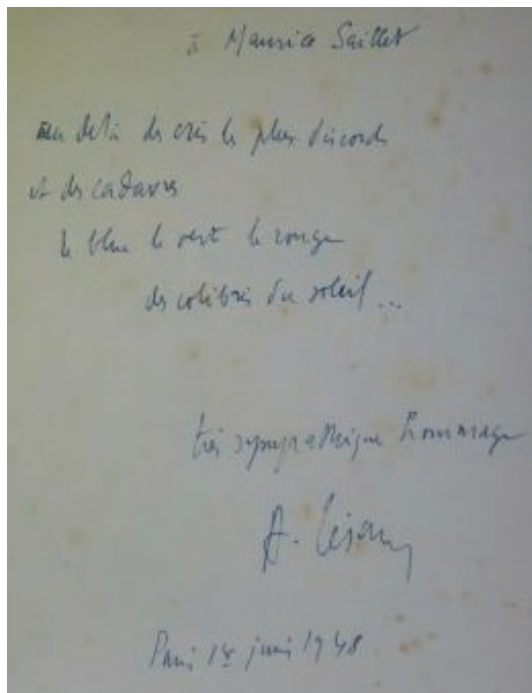 à Maurice Saillet
au delà des cris les plus discords
et des cadavres
le bleu le vert le rouge
des colibris du soleil...
très sympathique hommage
A. Césaire
Paris 1948